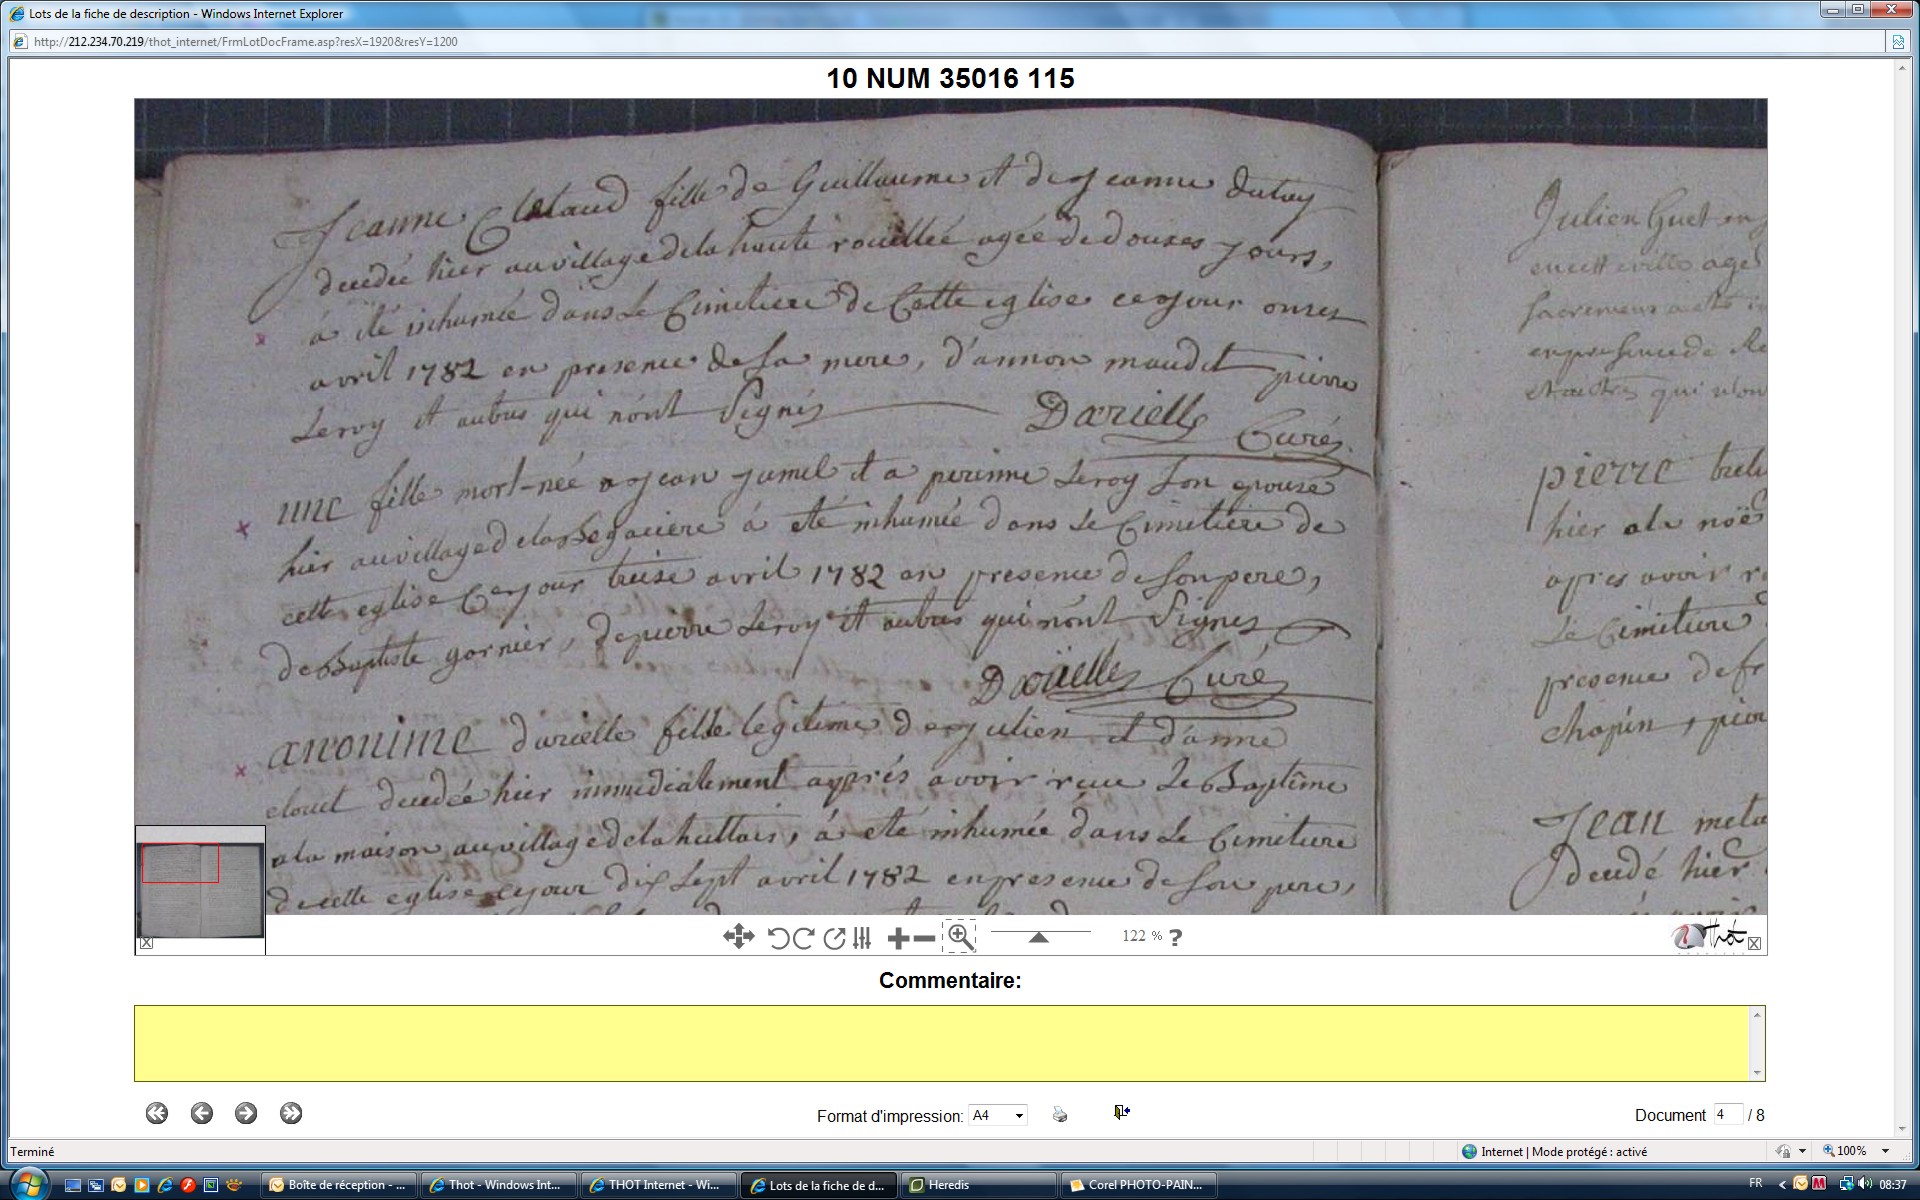 Lots de la fiche de description - Windows Internet Explorer
http://212.234.70.219/thot_internet/FrmLotDocFrame.asp?resX=1920&resY=1200
10 NUM 35016 115
Jeanne fille de Guillaume et de Jeanne
decedée hier au village de la haute rouellée agée de douzes jours,
á été inhumée dans Le Cimetiere de Cette eglise ce jour onzes
avril 1782 en presence de sa mere, d'annon maudet pierre
Leroy et autres qui n'ont Signés Darielle Curé
une fille mort-née a jean jamel et a perinne Leroy son epouse
hier au village de la Begaciere á eté inhumée dans Le Cimetiere de
cette eglise Ce jour treize avril 1782 en presence de son pere,
de Baptiste garnier, de pierre Leroy et autres qui n'ont Signés
Darielle Curé
anonime darielle fille legitime de julien et d'anne
clouet decedée hier immediatement aprés avoir reçue Le Baptême
a la maison au village de la huttais, á eté inhumée dans Le Cimetiere
de cette eglise ce jour dix Sept avril 1782 en presence de son pere,
Julien Guet
en cette ville agé
sacremens a eté
en presence de
et autres qui n'on
pierre
hier a la noë
apres avoir
Le Cimetiere
presence de
chopin, pier
Jean
decedé hier
122 % ?
Thot
Commentaire:
Format d'impression: A4
Document 4 / 8
Terminé
Internet | Mode protégé : activé
100%
Boîte de réception - ...
Thot - Windows Int...
THOT Internet - Wi...
Lots de la fiche de d...
Heredis
Corel PHOTO-PAIN...
FR
08:37